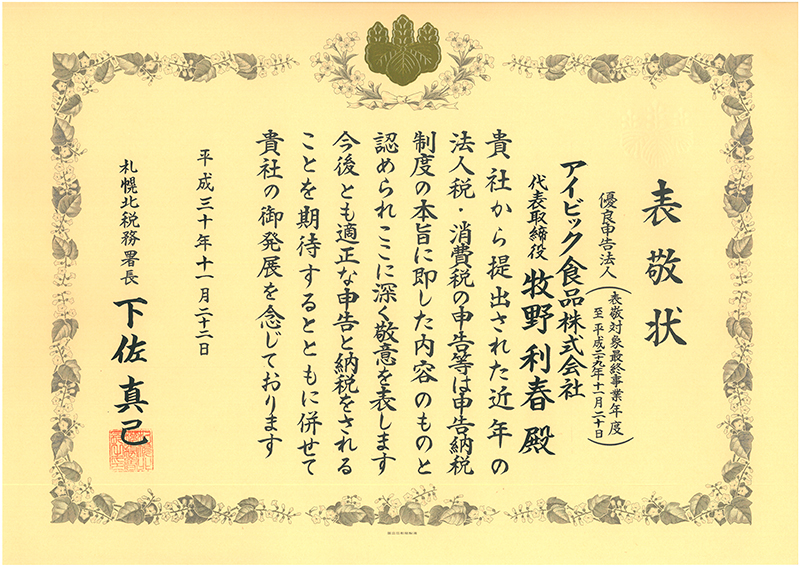 表敬状
優良申告法人
(表敬対象最終事業年度
至平成二九年十一月二十日)
アイビック食品株式会社
代表取締役 牧野利春 殿
貴社から提出された近年の
法人税・消費税の申告等は申告納税
制度の本旨に即した内容のものと
認められここに深く敬意を表します
今後とも適正な申告と納税をされる
ことを期待するとともに併せて
貴社の御発展を念じております
平成三十年十一月二十二日
札幌北税務署長 下佐真己